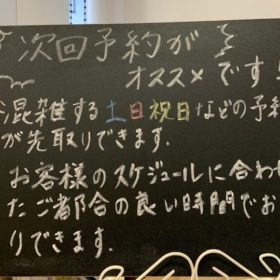 次回予約が
オススメです!
混雑する土日祝日などの予約
が先取りできます.
お客様のスケジュールに合わせ
たご都合の良い時間でお
りできます.